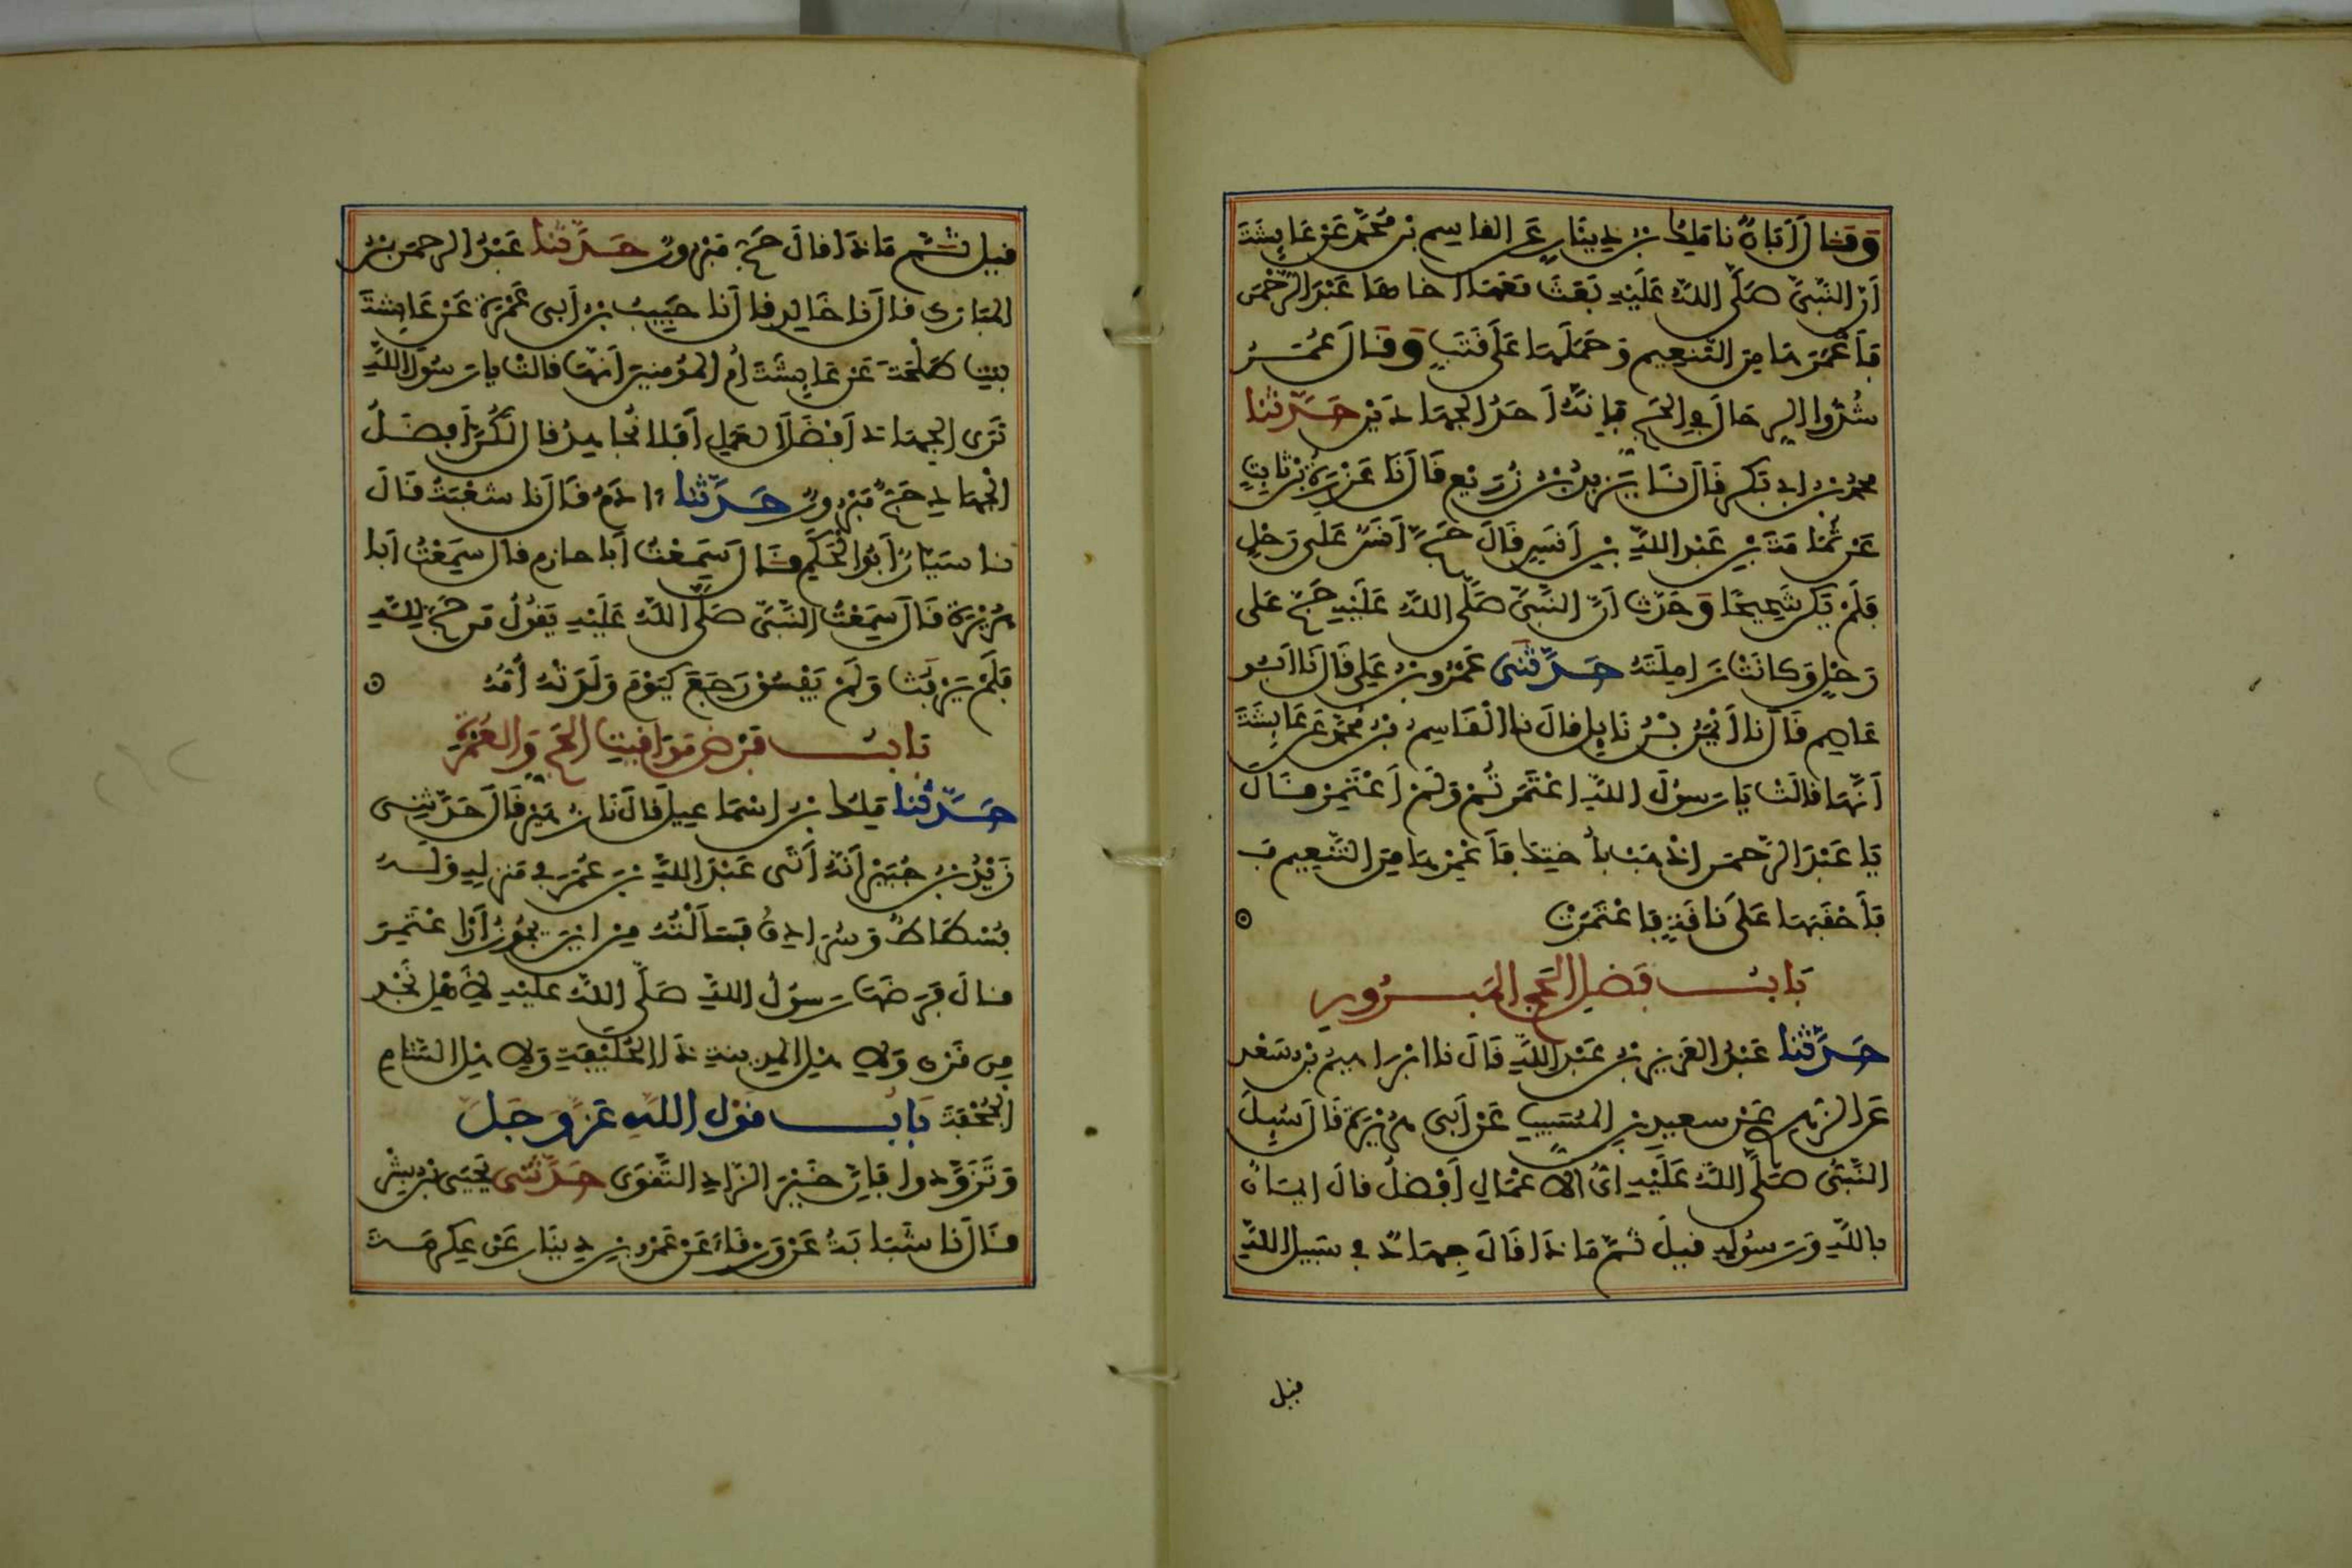 وَقَالَ أَبَانُ نا مَلِكُ بن دِينَارٍ عَنِ القاسِمِ بنِ مُحَمَّدٍ عَنْ عَايِشَةَ
أَنَّ النَّبِيَّ صَلَّى اللهُ عَلَيْهِ بَعَثَ مَعَهَا أخَاهَا عَبْدَ الرَّحْمَنِ
فَأَعْمَرَهَا مِنَ التَّنعِيمِ وَحَمَلَهَا عَلَى قَتَبٍ وَقَالَ عُمَرُ
شُدُّوا الرِحَالَ فِي الحَجِّ فَإِنَّهُ أَحَدُ الجِهَادَيْنِ حَدَّثَنَا
محمد بن ابي بَكرٍ قَالَ نَا يَزِيدُ بْنُ زُرَيْعٍ قَالَ نَا عَزْرَةُ بْنُ ثَابِتٍ
عَنْ ثُمَامَةَ بْنِ عَبْدِ اللهِ بْنِ أَنَسٍ قَالَ حَجَّ أَنَسٌ عَلَى رَحْلٍ
فَلَمْ يَكُنْ شَحِيحًا وَحَدَّثَ أَنَّ النَّبِيَّ صَلَّى اللهُ عَلَيْهِ حَجَّ عَلَى
رَحْلٍ وَكَانَتْ زَامِلَتَهُ حَدَّثَنِى عَمْرُو بنُ عَلِى قَالَ نَا ابُو
عَاصِمٍ قَالَ نا أَيْمَنُ بْنُ نَابِلٍ قالَ نا الْقَاسِمُ بْنُ مُحَمَّدٍ عَنْ عَايِشَةَ
أَنَّهَا قالَتْ يَا رَسُولَ اللهِ اعْتَمَرْتُمْ وَلَمْ أَعْتَمِرْ قَالَ
يَا عَبْدَ الرَّحمنِ اذْهَبْ بِأُخْتِكَ فَأَعْمِرْهَا مِنَ التَّنْعِيمِ فَ
فَأَحْقَبَهَا عَلَى نَاقَةٍ فَاعْتَمَرَتْ
بَابُ فَضْلِ الحَجِّ المَبْرُورِ
حَدَّثَنَا عَبْدُ العَزِيزِ بنُ عَبْدِ اللهِ قَالَ نا ابْرَاهِيمُ بْنُ سَعْدٍ
عَنِ الزُهْرِي عَنْ سعيدِ بنِ المُسَيِّبِ عَنْ أَبِى هُرَيْرَةَ قَالَ سُيِلَ
النَّبِيُّ صَلَّى اللهُ عَلَيْهِ أَيُّ الاعْمَالِ أَفْضَلُ قالَ ايمَانٌ
بِاللهِ وَرَسُولِهِ قيلَ ثُمَّ مَاذَا قَالَ جِهَادٌ فِي سَبِيلِ اللهِ
قيل
قيل ثُمَّ مَاذَا قالَ حَجٌّ مَبْرُورٌ حَدَّثَنَا عَبْدُ الرحمنِ بْنُ
المُبَارَكِ قالَ نا خَالِدٌ قالَ أَنا حَبِيبُ بنُ أَبِى عَمْرَةَ عَنْ عَايِشَةَ
بِنْتِ طَلْحَةَ عَنْ عَايِشَةَ أُمِ المُؤْمِنِينَ أَنَّهَا قالَتْ يا رَسُولَ اللهِ
نَرَى الجِهَادَ أَفْضَلَ العَمَلِ أَفَلا نُجَاهِدُ قالَ لَكُنَّ أَفْضَلُ
الجِهَادِ حَجٌّ مَبْرُورٌ حَدَّثَنَا ادَمُ قَالَ نا شُعْبَةُ قَالَ
نا سَيَّارٌ أَبُو الحَكَمِ قَالَ سَمِعْتُ أَبا حازِمٍ قالَ سَمِعْتُ أَبا
هُرَيْرَةَ قَالَ سَمِعْتُ النَّبِيَّ صَلَّى اللهُ عَلَيْهِ يَقُولُ مَن حَجَّ لِلَّهِ
فَلَمْ يَرْفَثْ وَلَمْ يَفْسُقْ رَجَعَ كَيَوْمَ وَلَدَتْهُ أُمُّهُ
بَابُ فَرْضِ مَوَاقِيتِ الحَجِّ وَالعُمْرَةِ
حَدَّثَنَا مَلِكُ بنُ اسْمَاعِيلَ قَالَ نَا زُهَيْرٌ قَالَ حَدَّثَنِى
زَيْدُ بنُ جُبَيْرٍ أَنَّهُ أَتَى عَبْدَ اللهِ بنَ عُمَرَ فِي مَنْزِلِهِ وَلَهُ
فُسْطَاطٌ وَسُرَادِقٌ فَسَأَلْتُهُ مِنْ ايْنَ يَجُوزُ أَنْ اعْتَمِرَ
قالَ فَرَضَهَا رَسُولُ اللهِ صَلَّى اللهُ عَلَيْهِ لأَهْلِ نَجْدٍ
مِن قَرْنٍ وَلِاهْلِ المَدِينَةِ ذَا الحُلَيْفَةِ وَلاهْلِ الشَّامِ
الجُحْفَةَ بَابُ قَوْلِ اللهِ عَزَّ وَجَلَّ
وَتَزَوَّدُوا فَإِنَّ خَيْرَ الزَّادِ التَّقْوَى حَدَّثَنِى يَحْيَى بْنُ بِشْرٍ
قَالَ نا شَبَابَةُ عَنْ وَرْقَاءَ عَنْ عَمْرِو بنِ دِينَارٍ عَنْ عِكرِمَةَ